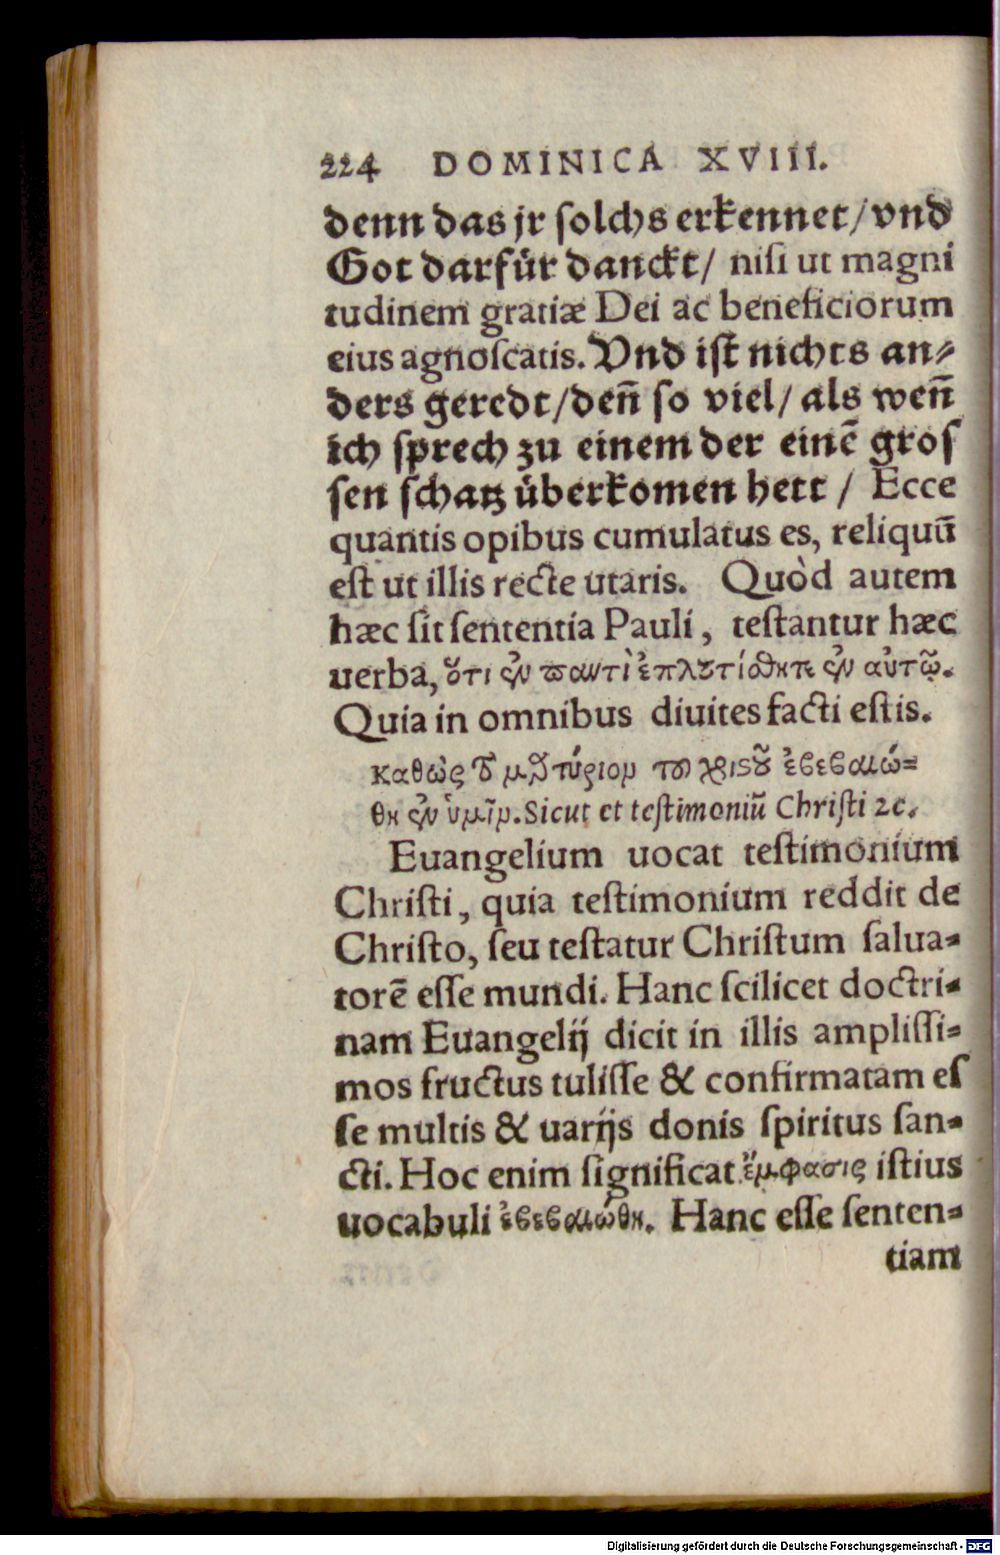 224 DOMINICA XVIII.
denn das jr ſolchs erkennet/vnd
Got darfür danckt/ niſi ut magni
tudinem gratiæ Dei ac beneficiorum
eius agnoſcatis. Vnd iſt nichts an⸗
ders geredt/deñ ſo viel/ als weñ
ich ſprech zu einem der einẽ groſ
ſen ſchatz überkomen hett / Ecce
quantis opibus cumulatus es, reliquũ
eſt ut illis recte utaris. Quòd autem
hæc ſit ſententia Pauli, teſtantur hæc
uerba, ὅτι ἐν παντὶ ἐπλουτίσθητε ἐν αὐτῷ.
Quia in omnibus diuites facti eſtis.
καθὼς τὸ μαρτύριον τοῦ χριστοῦ ἐβεβαιώ-
θη ἐν ὑμῖν. Sicut et teſtimoniũ Chriſti ꝛc.
Euangelium uocat teſtimonium
Chriſti, quia teſtimonium reddit de
Chriſto, ſeu teſtatur Chriſtum ſalua-
torẽ eſſe mundi. Hanc ſcilicet doctri-
nam Euangelij dicit in illis ampliſſi-
mos fructus tuliſſe & confirmatam eſ
ſe multis & uarijs donis ſpiritus ſan-
cti. Hoc enim ſignificat ἔμφασις iſtius
uocabuli ἐβεβαιώθη. Hanc eſſe ſenten-
tiam
Digitalisierung gefördert durch die Deutsche Forschungsgemeinschaft - DFG